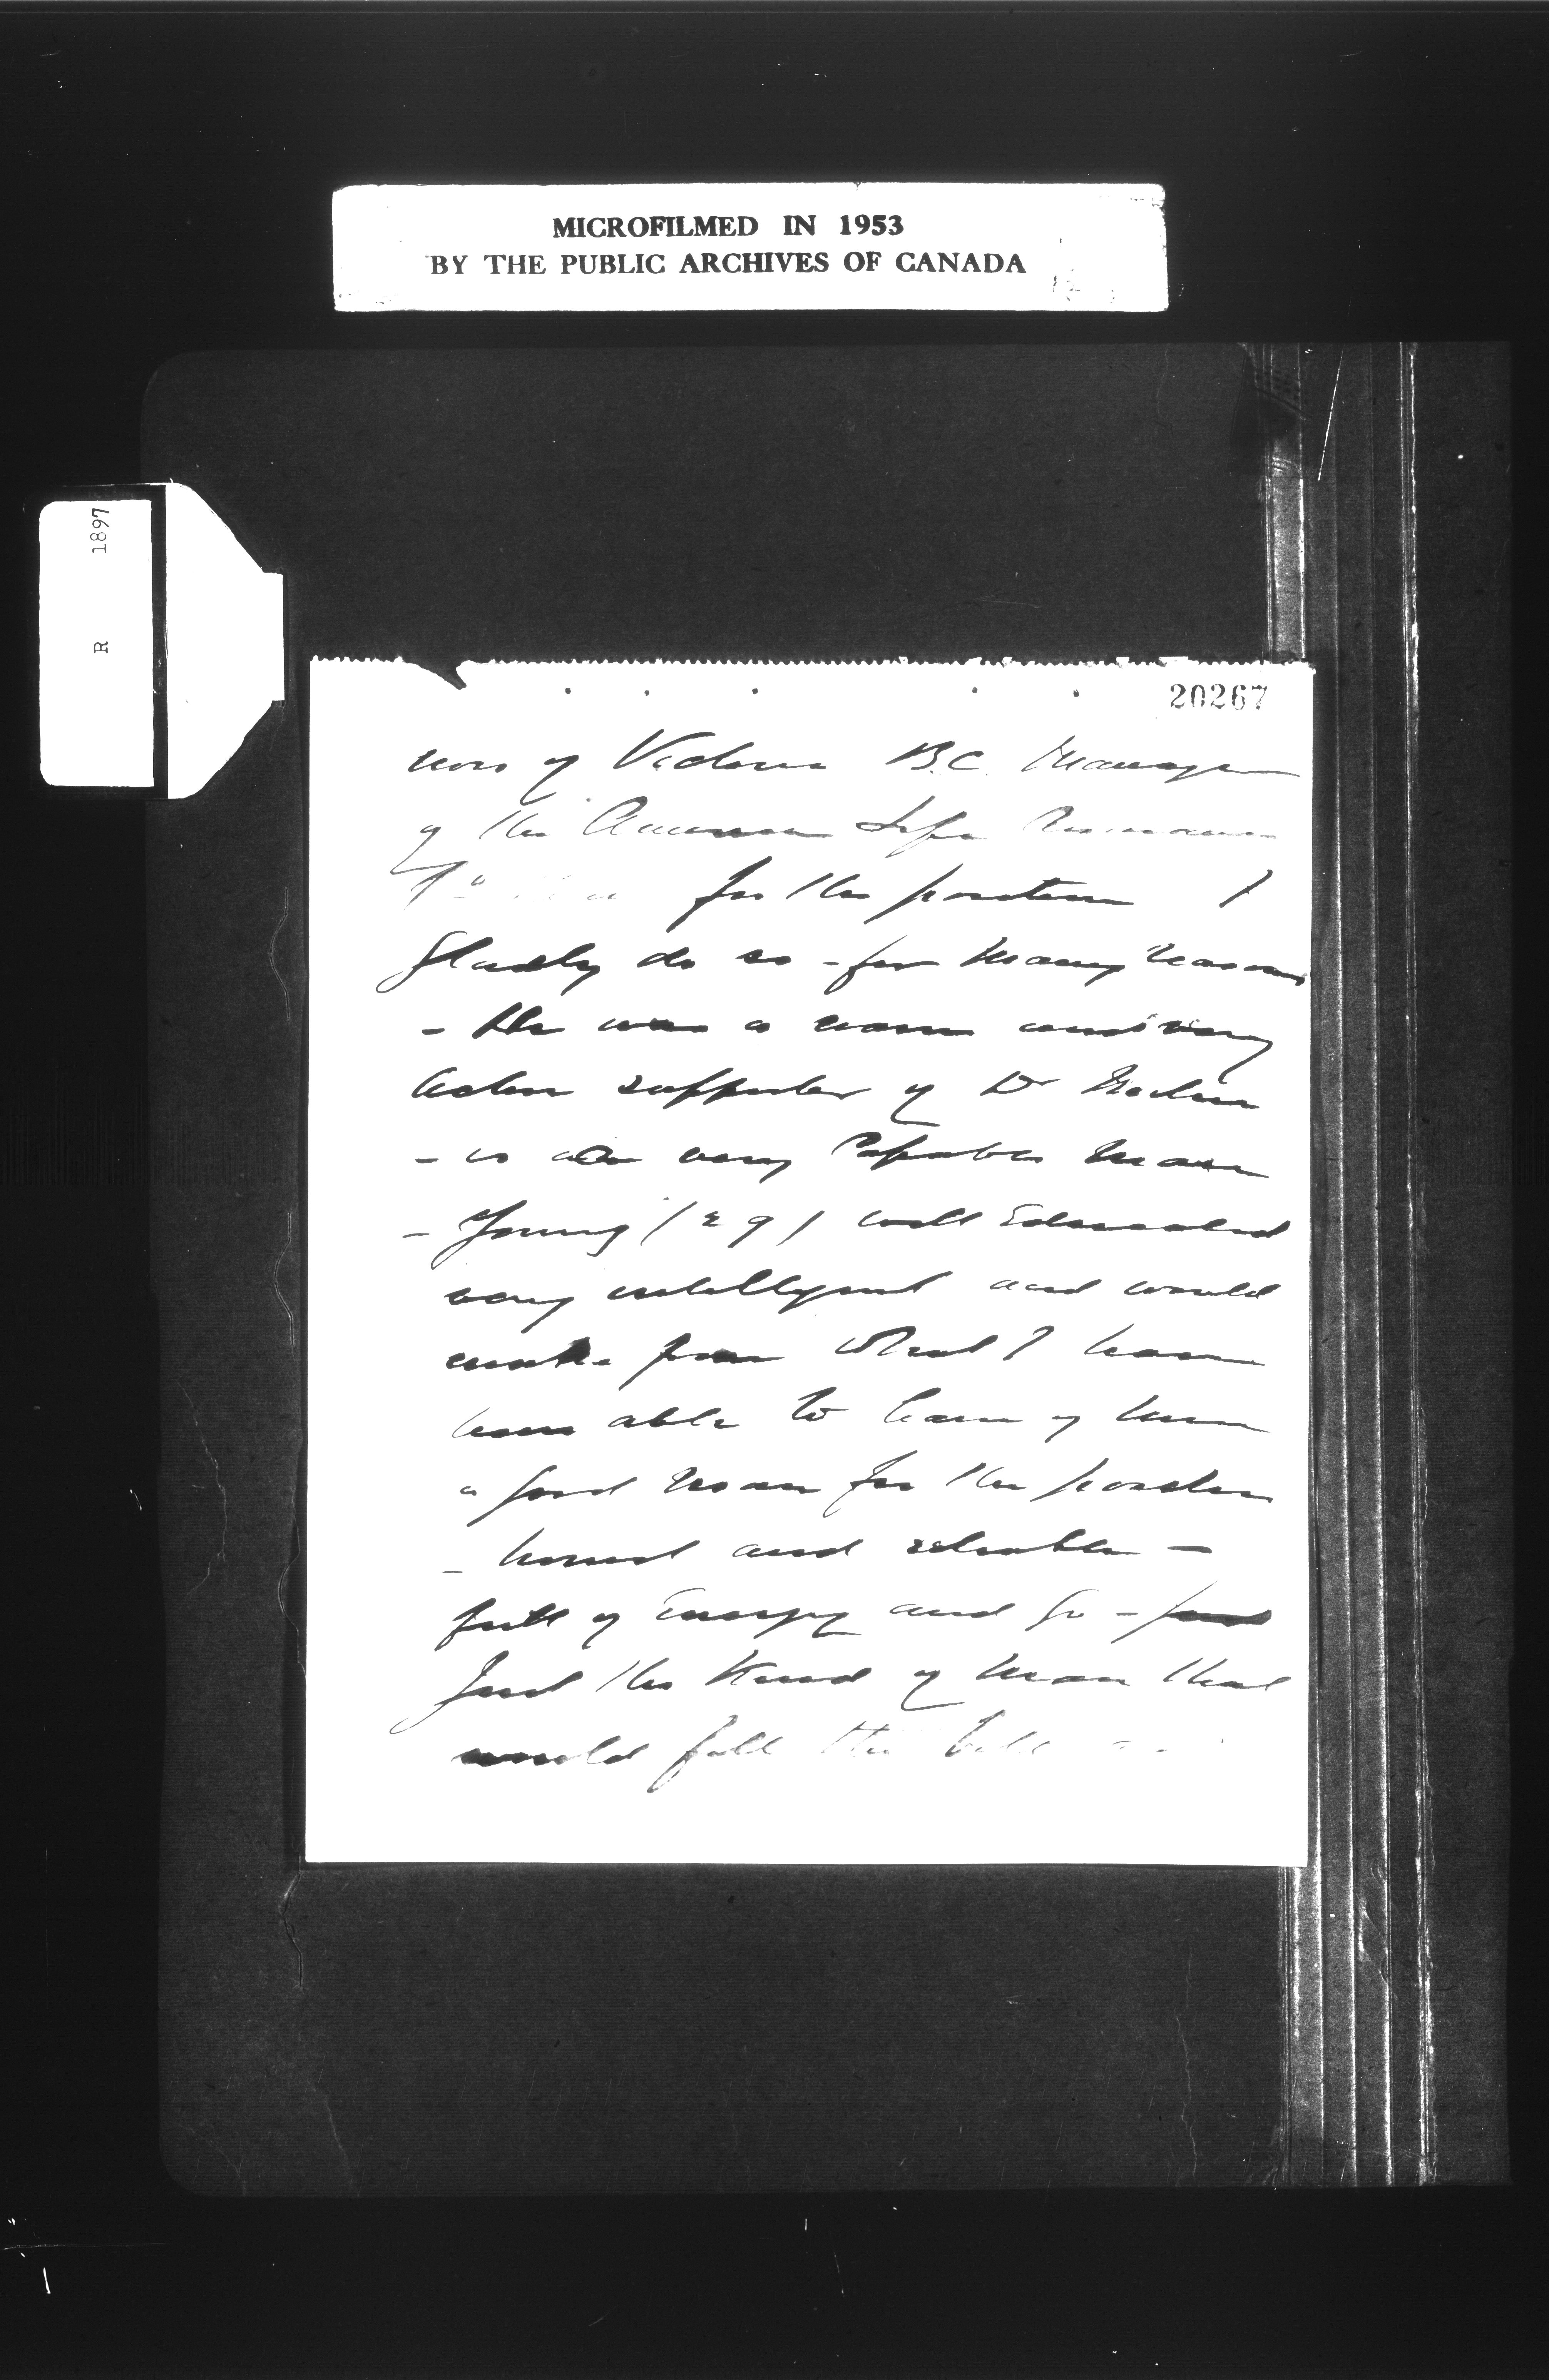 MICROFILMED IN 1953
BY THE PUBLIC ARCHIVES OF CANADA
R 1897
20267
of Victoria B.C. Manager
of the Life
for the position I
gladly do so - for many reasons
- He was a warm and very
active supporter of Dr
- is a very capable man
- Young (29) well Educated
very intelligent and would
make from what I have
been able to learn of him
a good man for the position
- honest and reliable -
full of Energy and Go -
Just the Kind of man that
would fill the bill